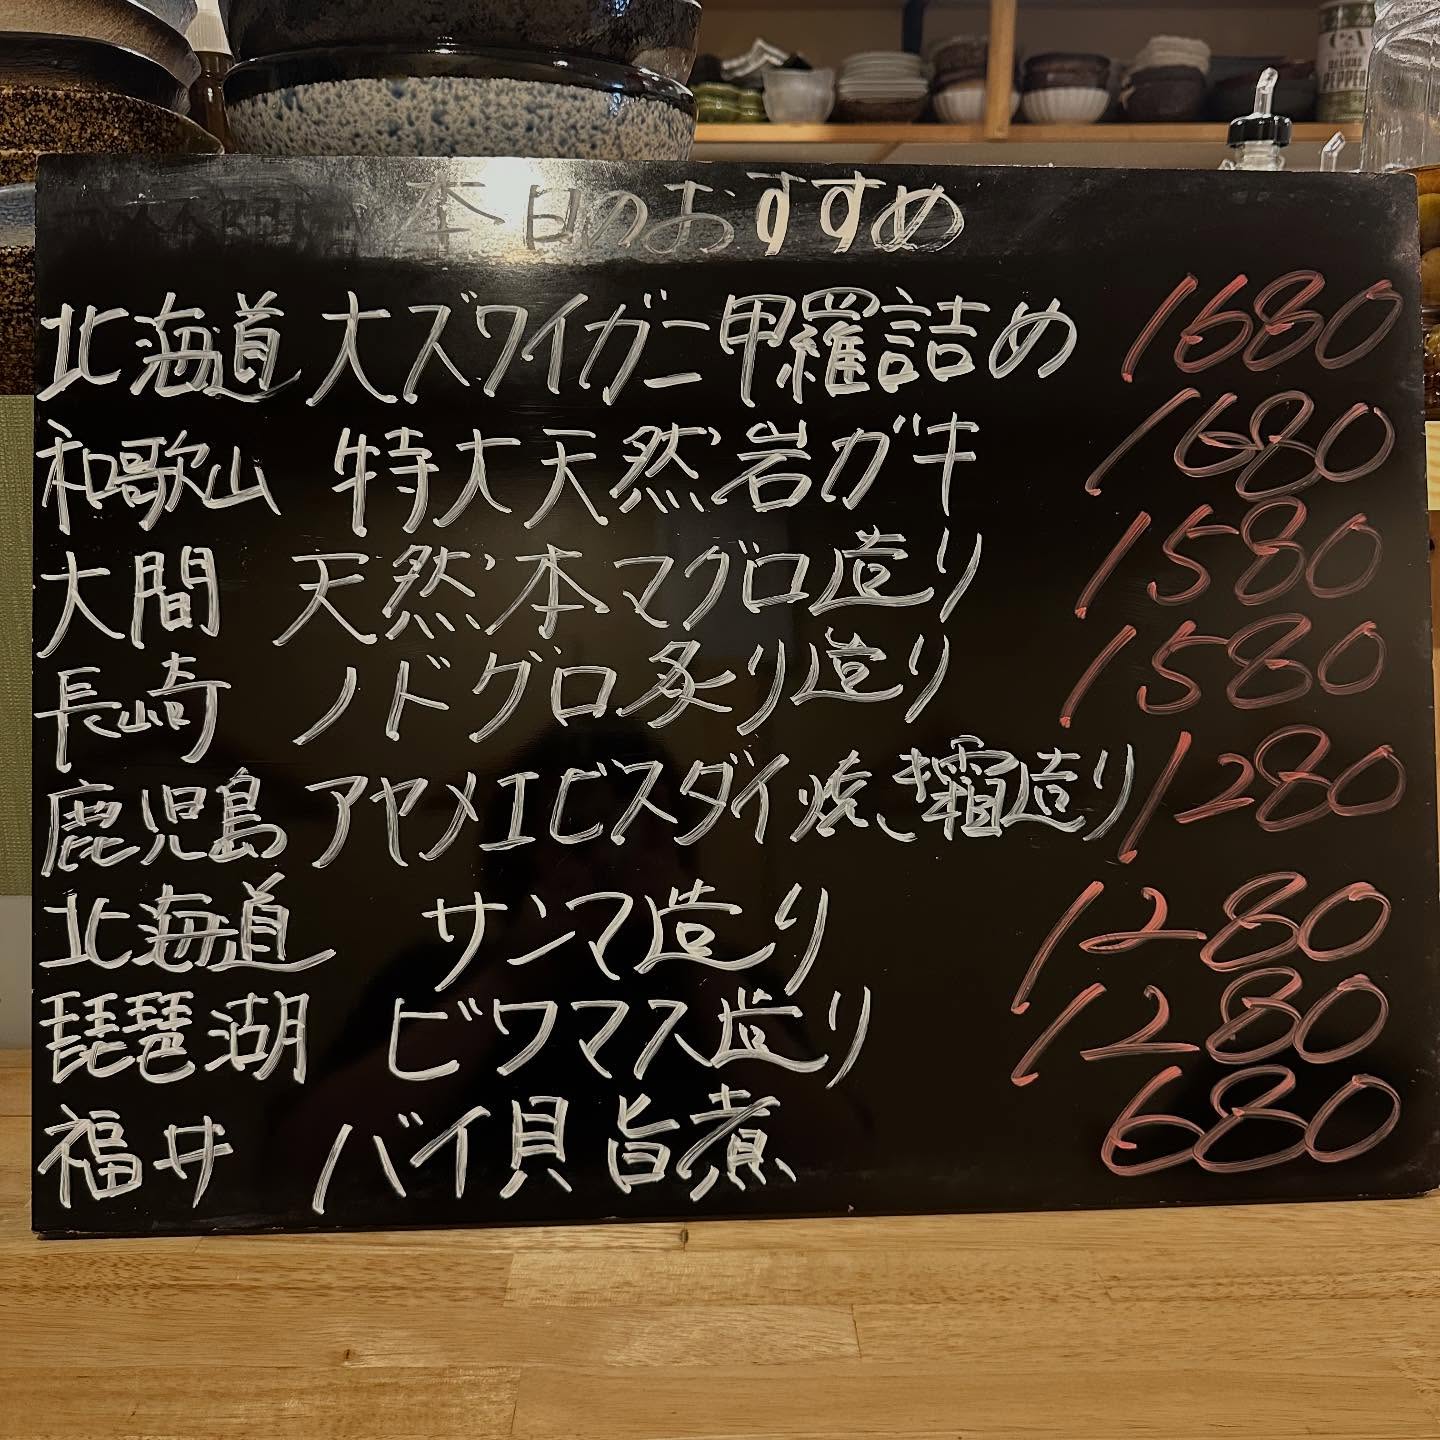 本日のおすすめ
北海道 大ズワイガニ甲羅詰め 1680
和歌山 特大天然岩ガキ 1680
大間 天然本マグロ造り 1580
長崎 ノドグロ炙り造り 1580
鹿児島 アヤメエビスダイ焼き霜造り 1280
北海道 サンマ造り 1280
琵琶湖 ビワマス造り 1280
福井 バイ貝旨煮 680
PEPPER